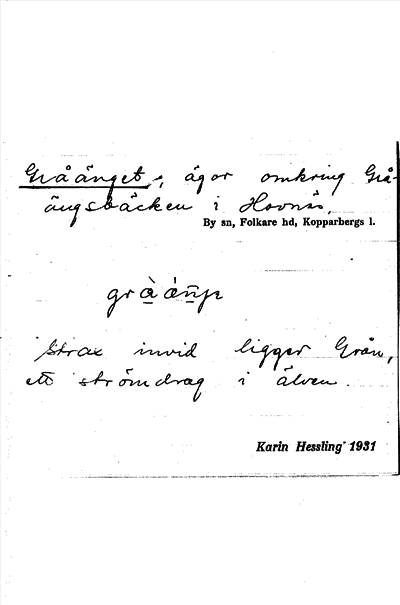 Gråänget, ägor omkring Grå-
ängsbäcken i Hovnäs,
By sn, Folkare hd, Kopparbergs l.
Strax invid ligger Grån,
ett strömdrag i älven.
Karin Hessling 1931